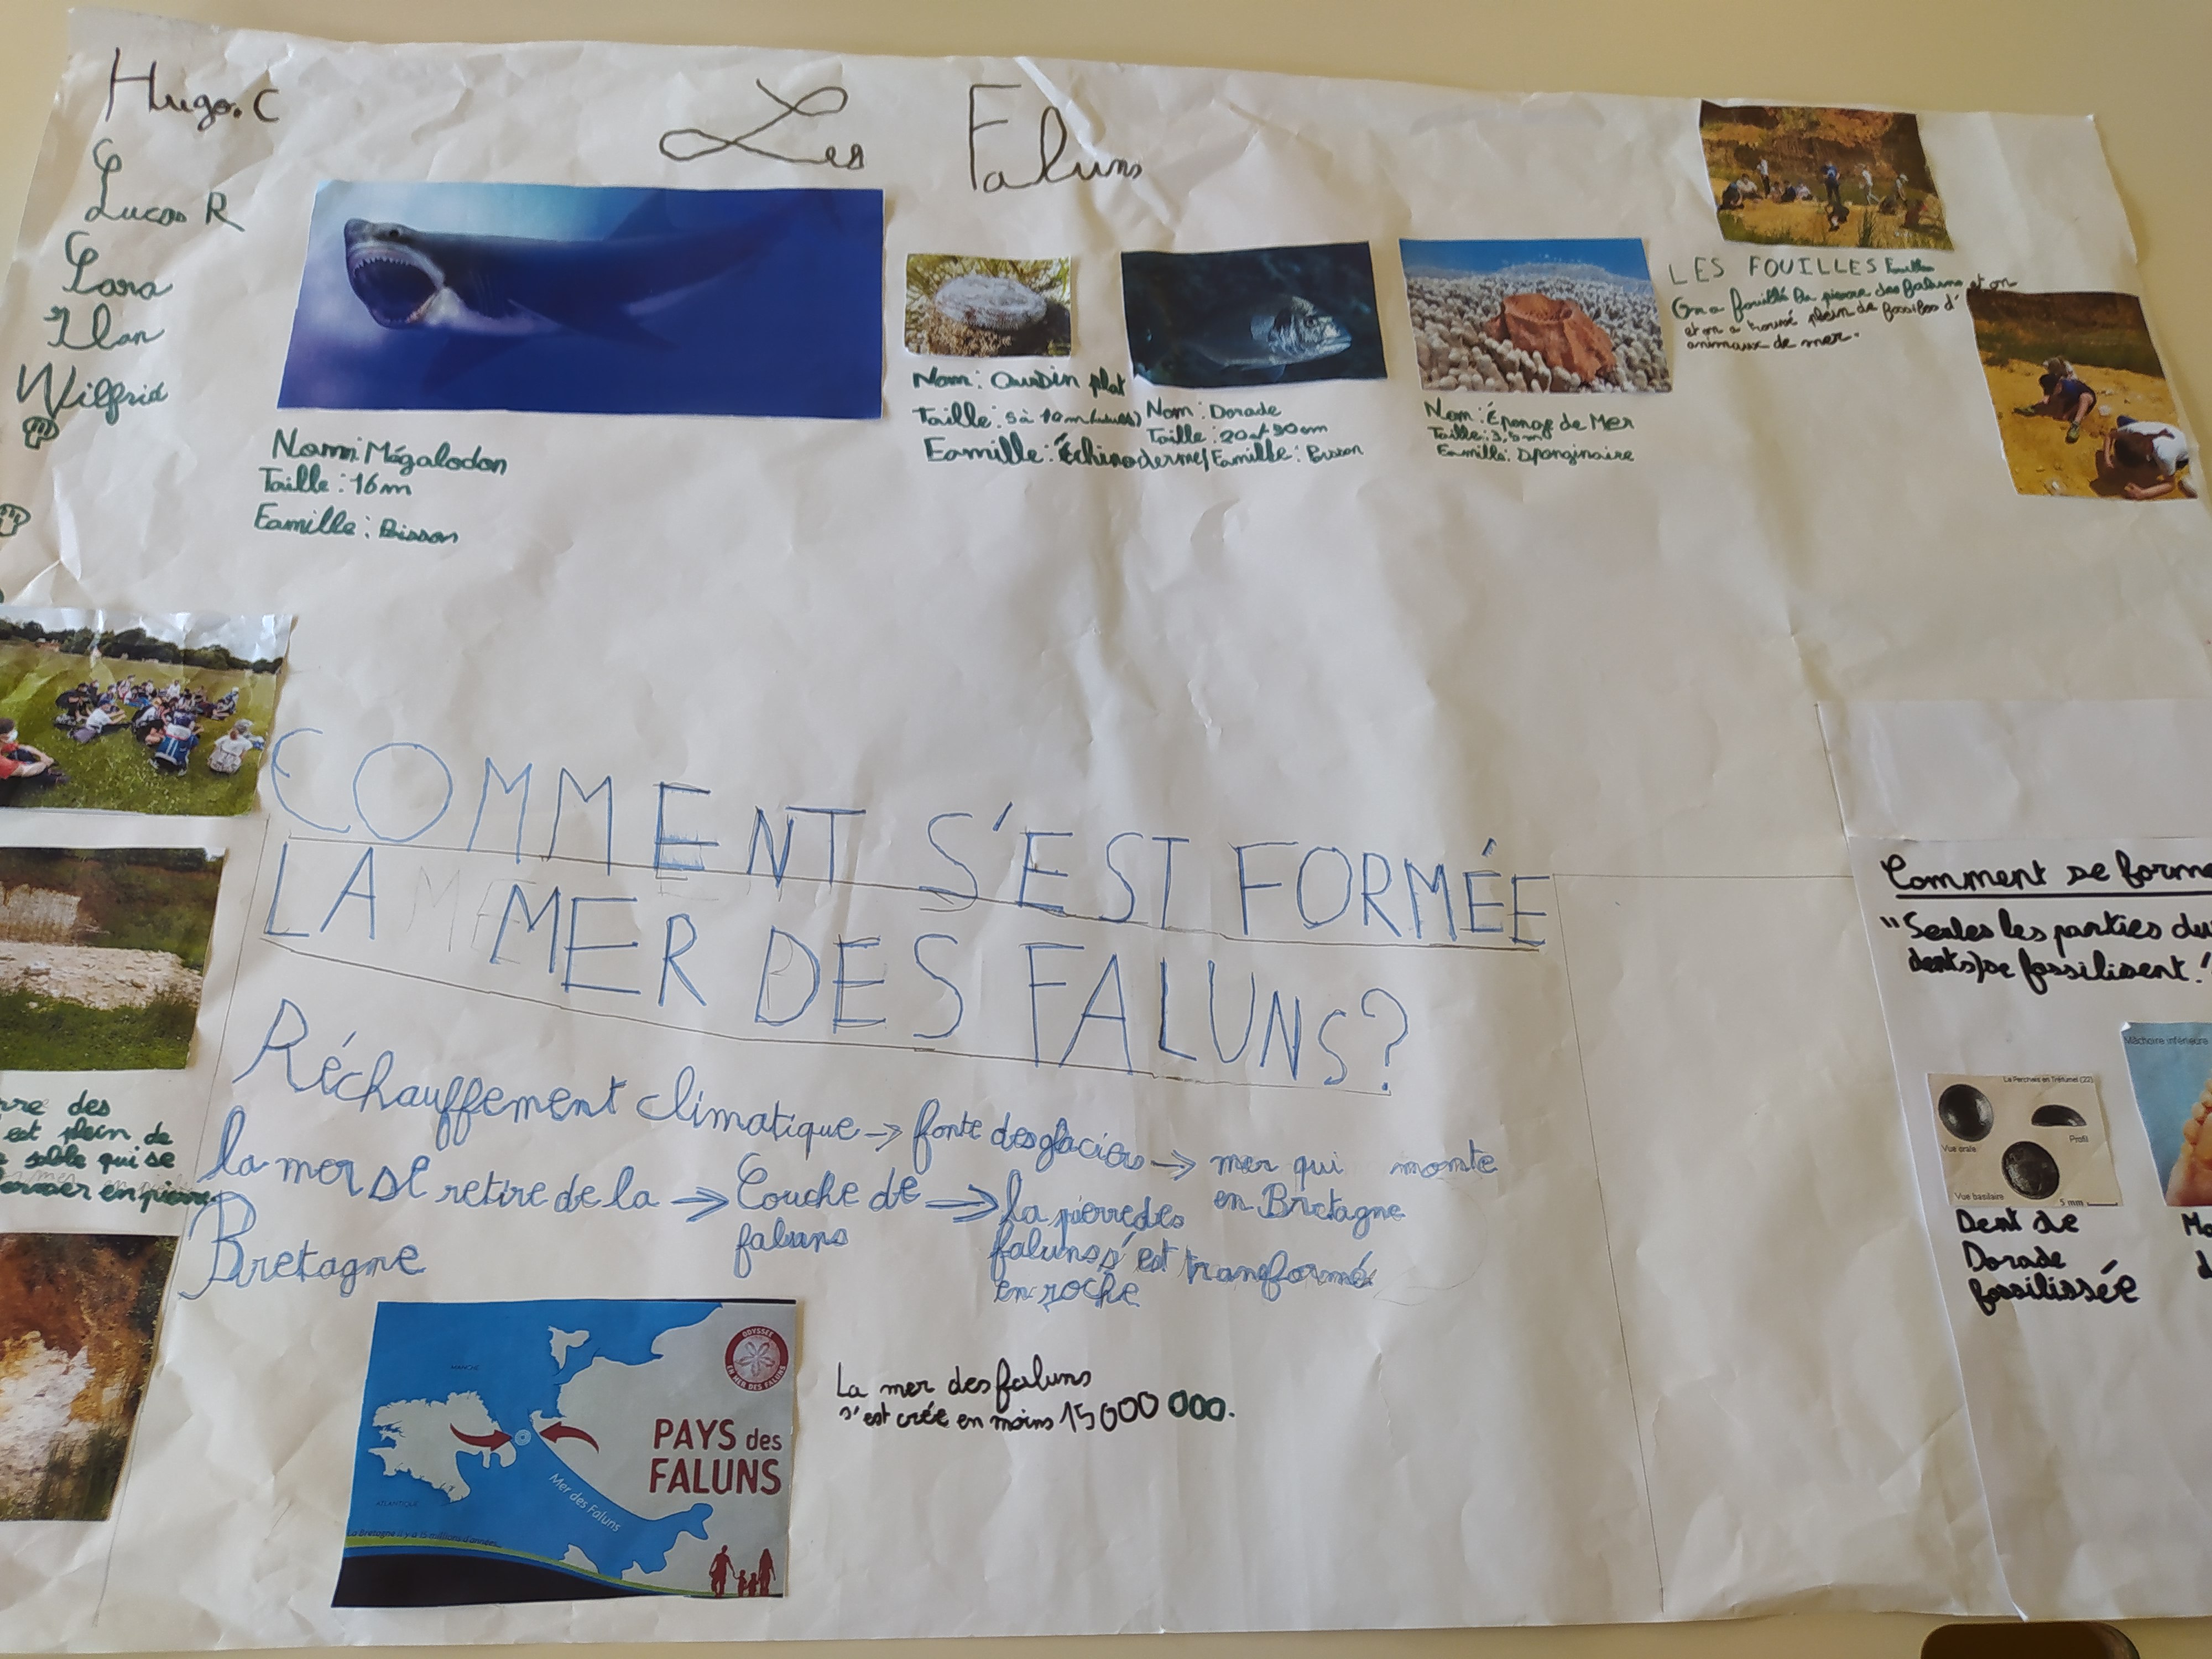 Hugo. C
Lucas R
Ilan
Wilfrid
Les Faluns
Nom: Mégalodon
Taille: 16m
Famille: Poisson
Nom: Oursin plat
Taille: 5 à 10 m
Famille: Échinodermes
Nom: Dorade
Taille: 20 et 90 cm
Famille: Poisson
Nom: Éponge de Mer
Taille: 3,5 m
Famille: Sponginaire
LES FOUILLES
On a fouillé la pierre des faluns et on
et on a trouvé plein de fossiles d'
animaux de mer.
COMMENT S'EST FORMÉE
LA MER DES FALUNS?
Réchauffement climatique → fonte des glaciers → mer qui monte
en Bretagne
la mer se retire de la
Bretagne
→ Couche de
faluns
→ la pierre des
faluns s'est transformé
en roche
rre des
est plein de
sable qui se
former en pierre
MANCHE
ATLANTIQUE
Mer des Faluns
ODYSSÉE
EN MER DES FALUNS
PAYS des
FALUNS
La Bretagne il y a 15 millions d'années
La mer des faluns
s'est crée en moins 15 000 000.
Comment se forme
"Seules les parties du
dents) se fossilisent!
Mâchoire inférieure
Le Perchais en Tréfumel (22)
Vue orale
Profil
Vue basilaire
5 mm
Dent de
Dorade
fossilissée